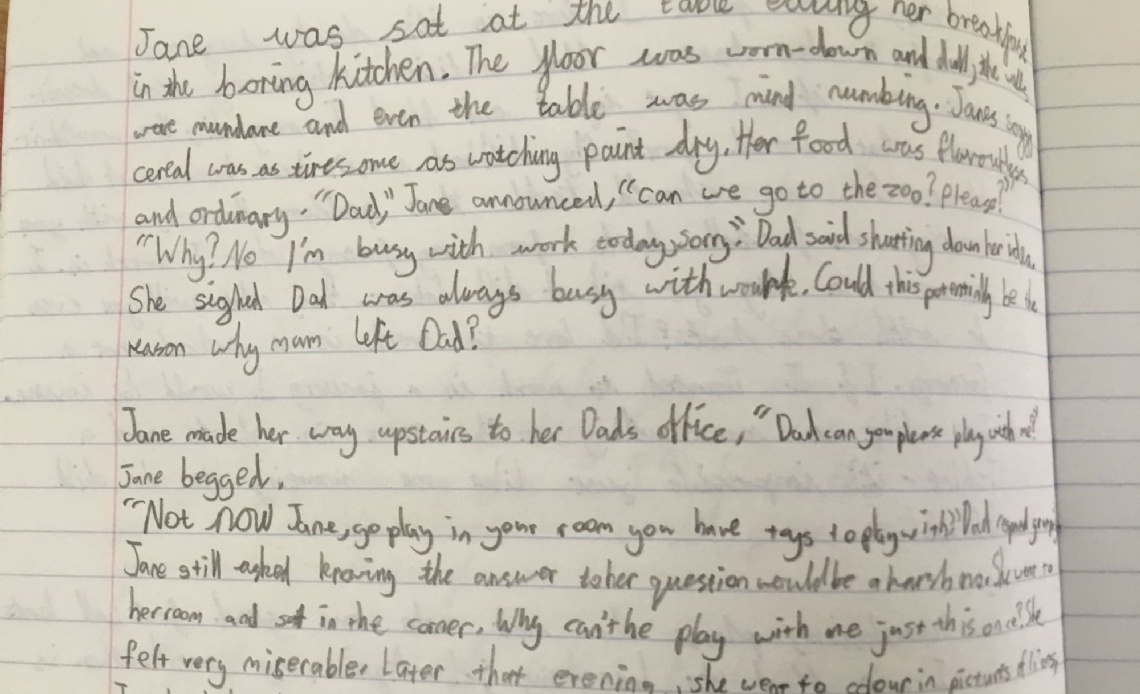 Jane was sat at the table eating her breakfast
in the boring kitchen. The floor was worn-down and dull, the walls
were mundane and even the table was mind numbing. Janes soggy
cereal was as tiresome as watching paint dry. Her food was flavourless
and ordinary. "Dad," Jane announced, "can we go to the zoo? Please?"
"Why? No I'm busy with work today, sorry." Dad said shutting down her idea.
She sighed Dad was always busy with work. Could this potentially be the
reason why mam left Dad?
Jane made her way upstairs to her Dads office, "Dad can you please play with me?"
Jane begged.
"Not now Jane, go play in your room you have toys to play with?" Dad
Jane still asked knowing the answer to her question would be a harsh no. She went to
her room and sat in the corner. Why can't he play with me just this once? She
felt very miserable. Later that evening, she went to colour in pictures of lions